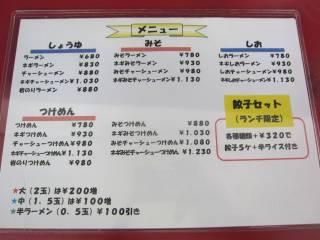 メニュー
しょうゆ
ラーメン ¥680
ネギラーメン ¥830
チャーシューメン ¥880
ネギチャーシューメン ¥1.030
岩のりラーメン ¥880
みそ
みそラーメン ¥780
ネギみそラーメン ¥930
みそチャーシューメン ¥980
ネギみそチャーシューメン ¥1.130
しお
しおラーメン ¥780
ネギしおラーメン ¥930
しおチャーシューメン ¥980
ネギしおチャーシューメン ¥1.130
つけめん
つけめん ¥780
ネギつけめん ¥930
チャーシューつけめん ¥980
ネギチャーシューつけめん ¥1.130
岩のりつけめん ¥980
みそつけめん ¥880
ネギみそつけめん ¥1.030
みそチャーシューつけめん ¥1.080
ネギみそチャーシューつけめん ¥1.230
餃子セット
(ランチ限定)
各種麺類+¥320で
餃子5ケ+半ライス付き
★大(2玉)は¥200増
★中(1.5玉)は¥100増
★半ラーメン(0.5玉)¥100引き